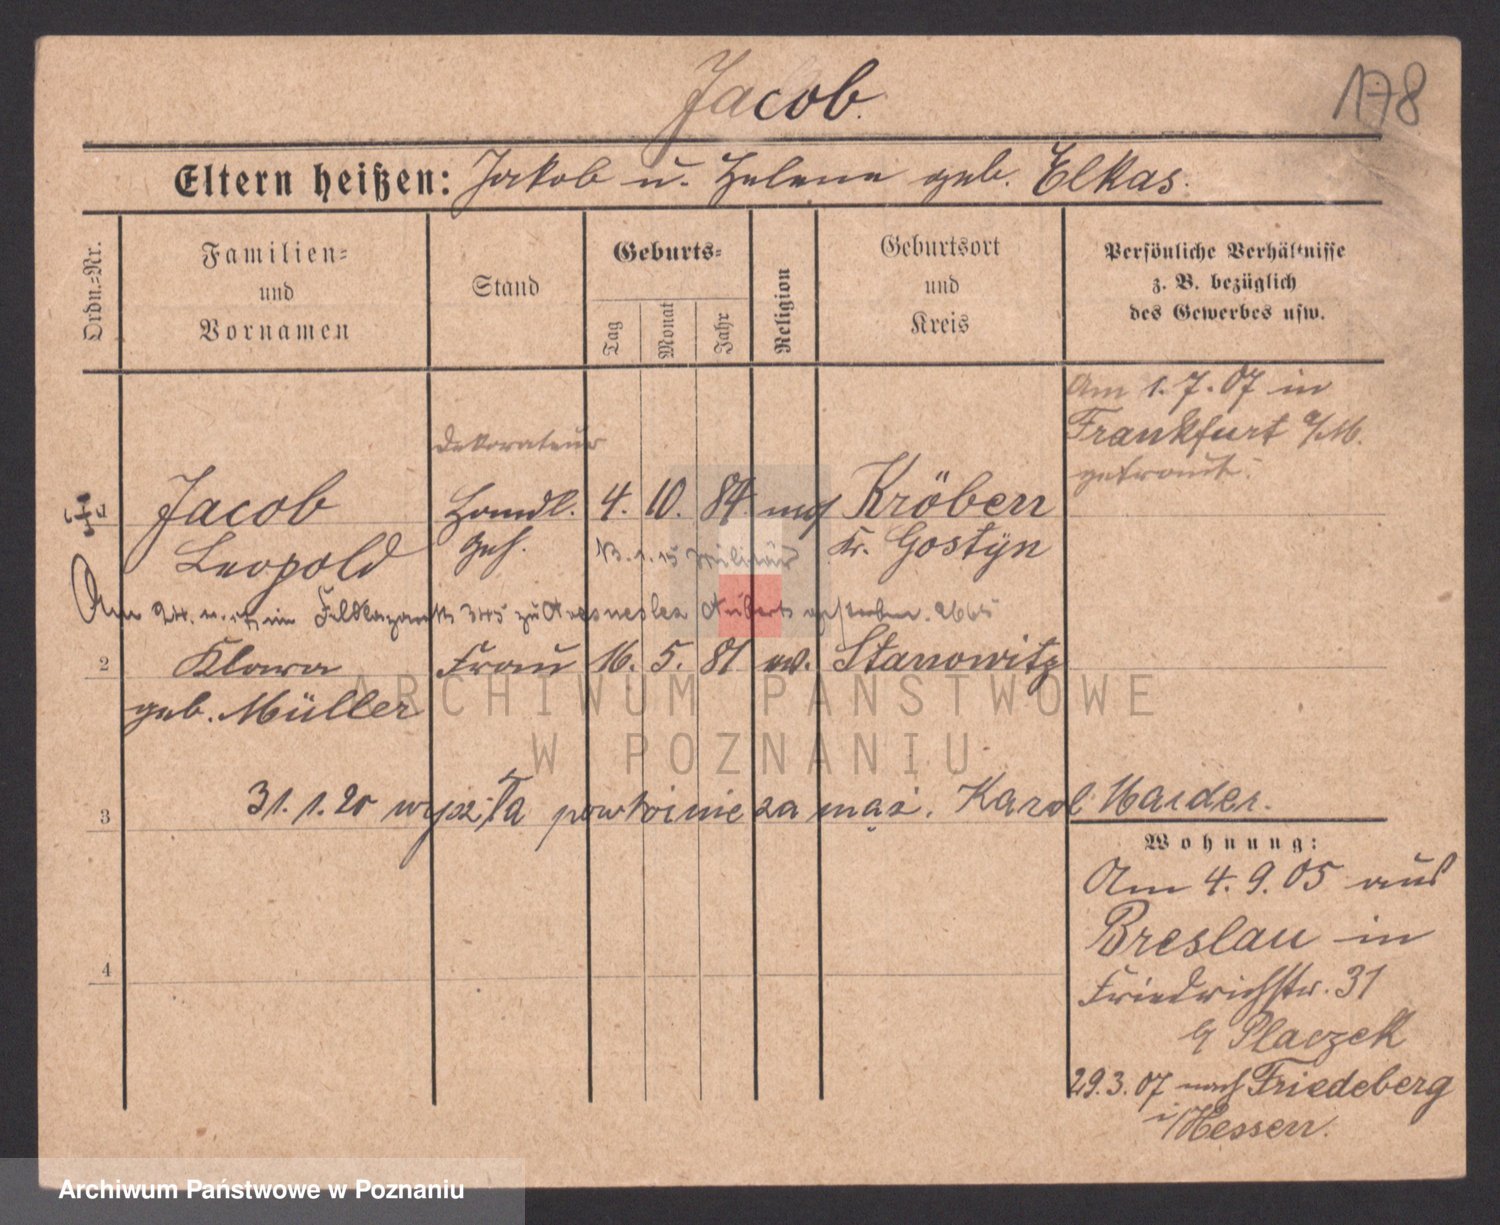 Jacob.
178
Eltern heißen: Jakob u. Helene geb. Elkas.
Ordn.-Nr.
Familien-
und
Vornamen
Stand
Geburts-
Tag
Monat
Jahr
Religion
Geburtsort
und
Kreis
Persönliche Verhältnisse
z. B. bezüglich
des Gewerbes usw.
Am 1.7.07 in
Frankfurt a/M.
getraut.
Dekorateur
Jacob Handl. 4. 10. 84. mos Kröben
Leopold Geh. 13.1.15 Militär Kr. Gostyn
Am 24. im Feldlazarett 345 zu gestorben. 2665
2 Klara Frau 16. 5. 81 ev. Stanowitz
geb. Müller
ARCHIWUM PAŃSTWOWE
W POZNANIU
3 31.1.20 wyszła powtórnie za mąż. Karol Harder.
Wohnung:
Am 4.9.05 aus
Breslau in
Friedrichstr. 31
b/ Placzek
4
29.3.07 nach Friedeberg
i/Hessen.
Archiwum Państwowe w Poznaniu